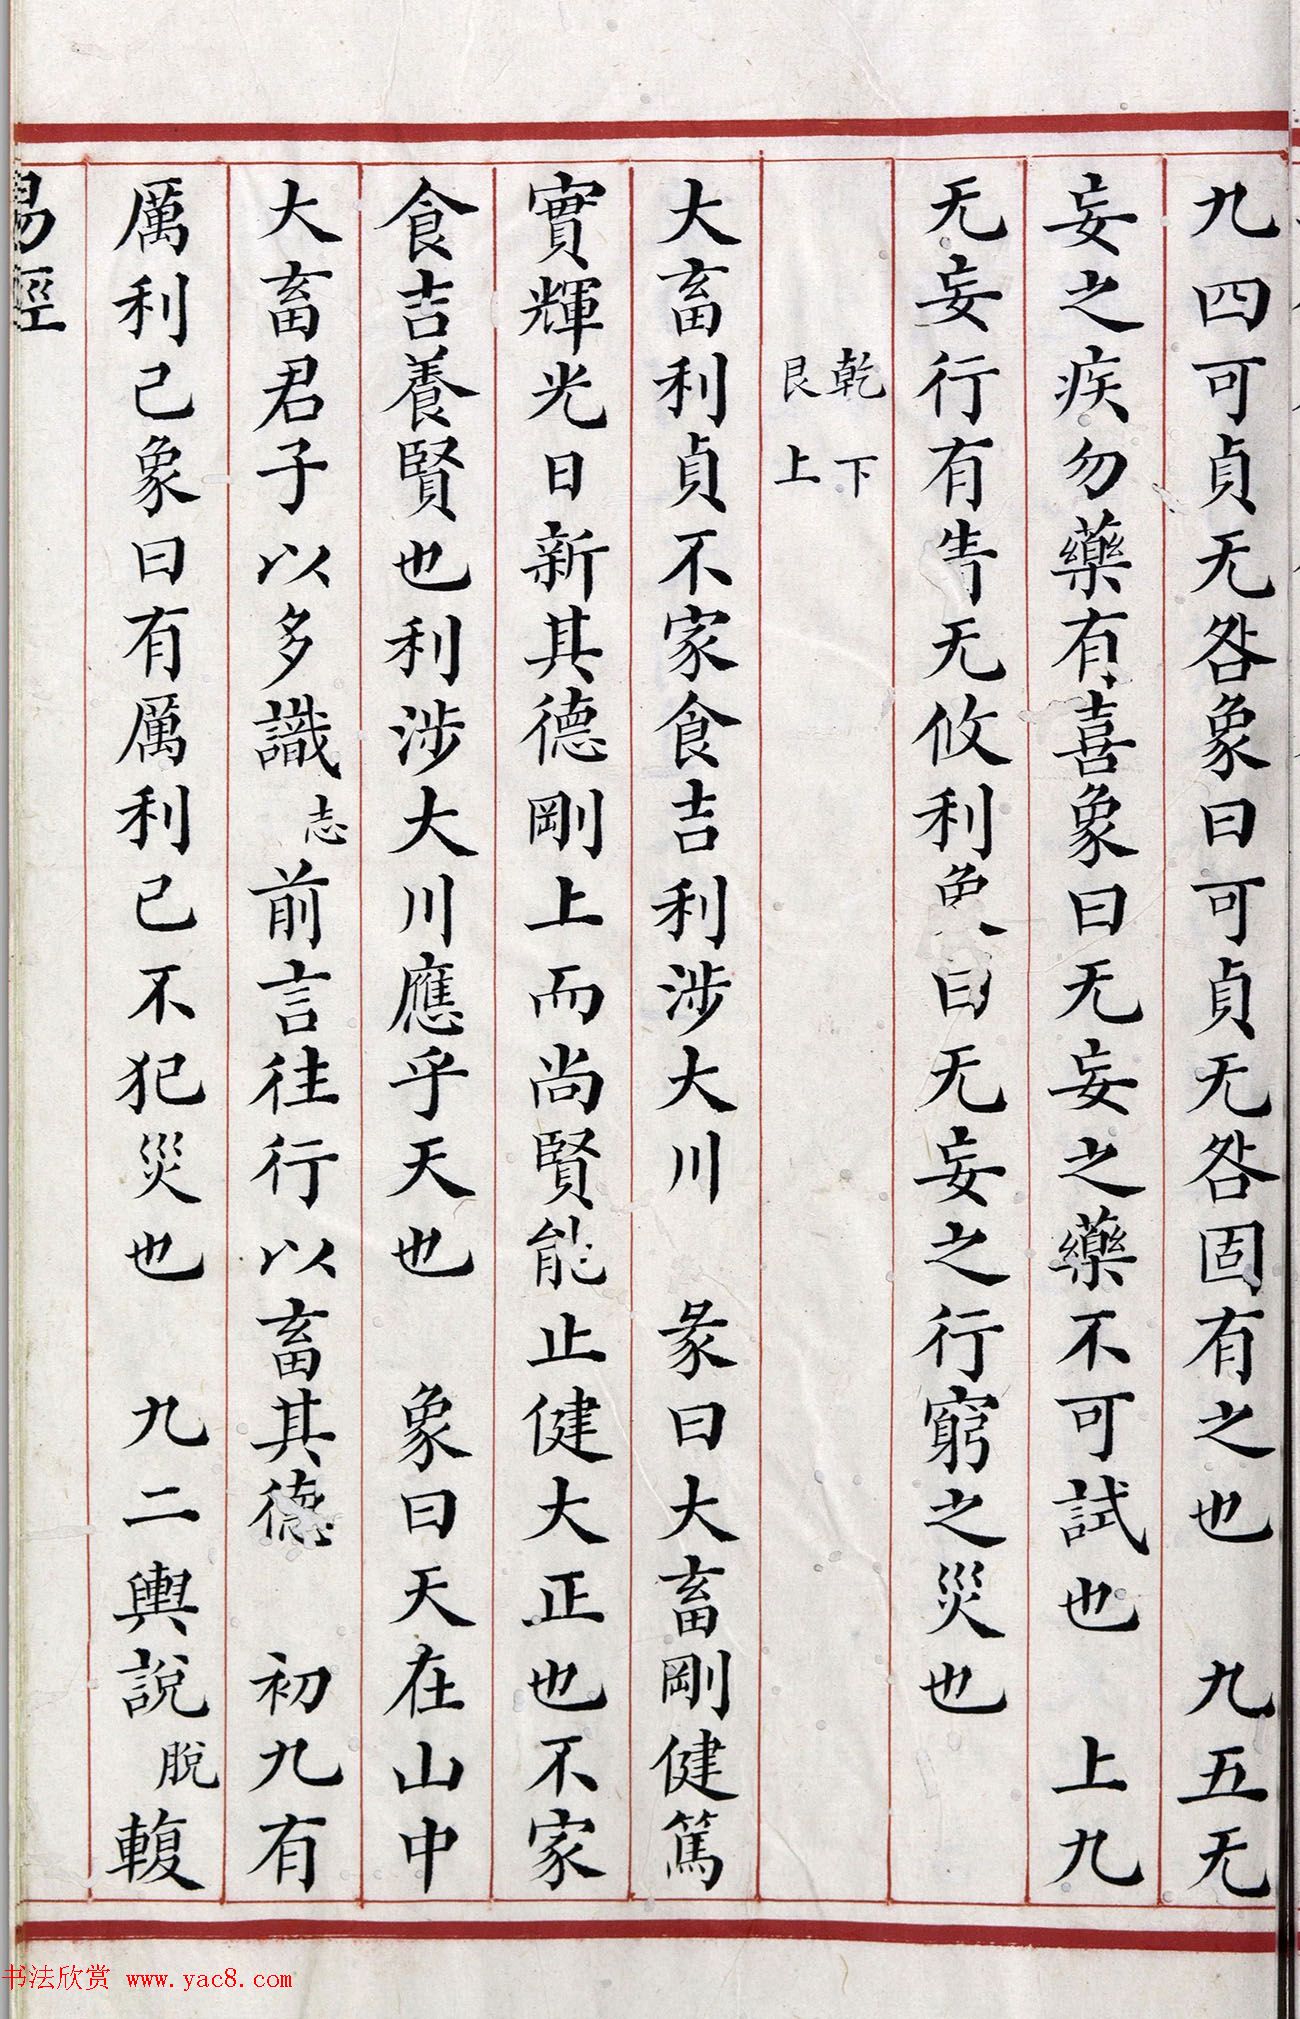 九四可貞无咎象曰可貞无咎固有之也 九五无
妄之疾勿藥有喜象曰无妄之藥不可試也 上九
无妄行有眚无攸利象曰无妄之行窮之災也
乾下
艮上
大畜利貞不家食吉利涉大川 彖曰大畜剛健篤
實輝光日新其德剛上而尚賢能止健大正也不家
食吉養賢也利涉大川應乎天也 象曰天在山中
大畜君子以多識志前言往行以畜其德 初九有
厲利已象曰有厲利已不犯災也 九二輿說脫輹
易經
书法欣赏 www.yac8.com